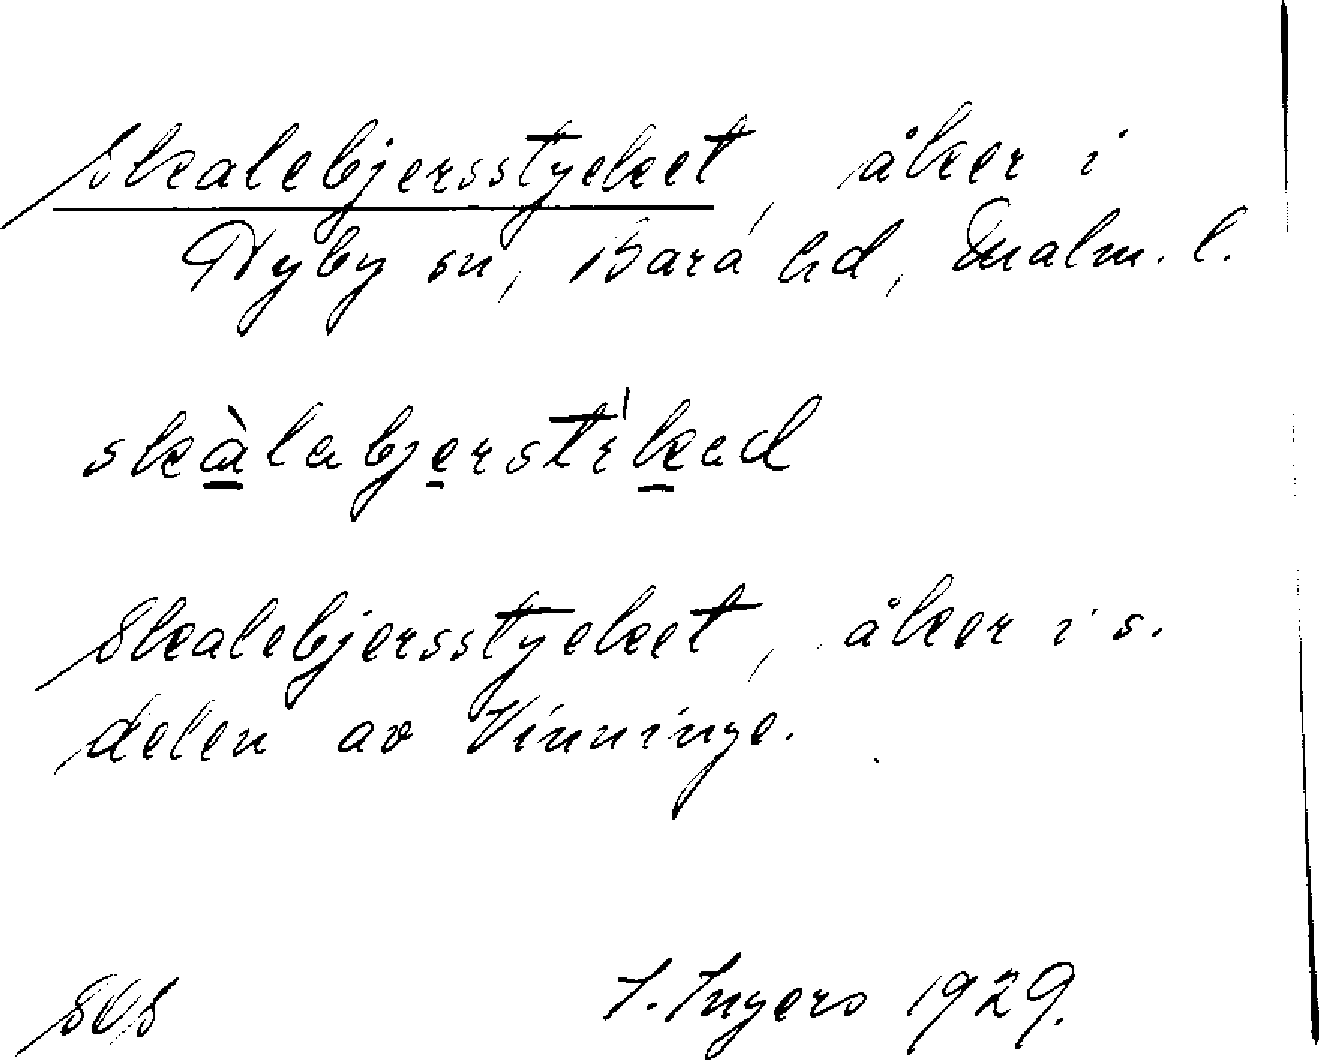 Skalebjersstycket, åker i
Hyby sn, Bara hd, Malm. l.
skàlabjerstìkad
Skalebjersstycket, åker i s.
delen av Vinninge.
I. Ingers 1929.